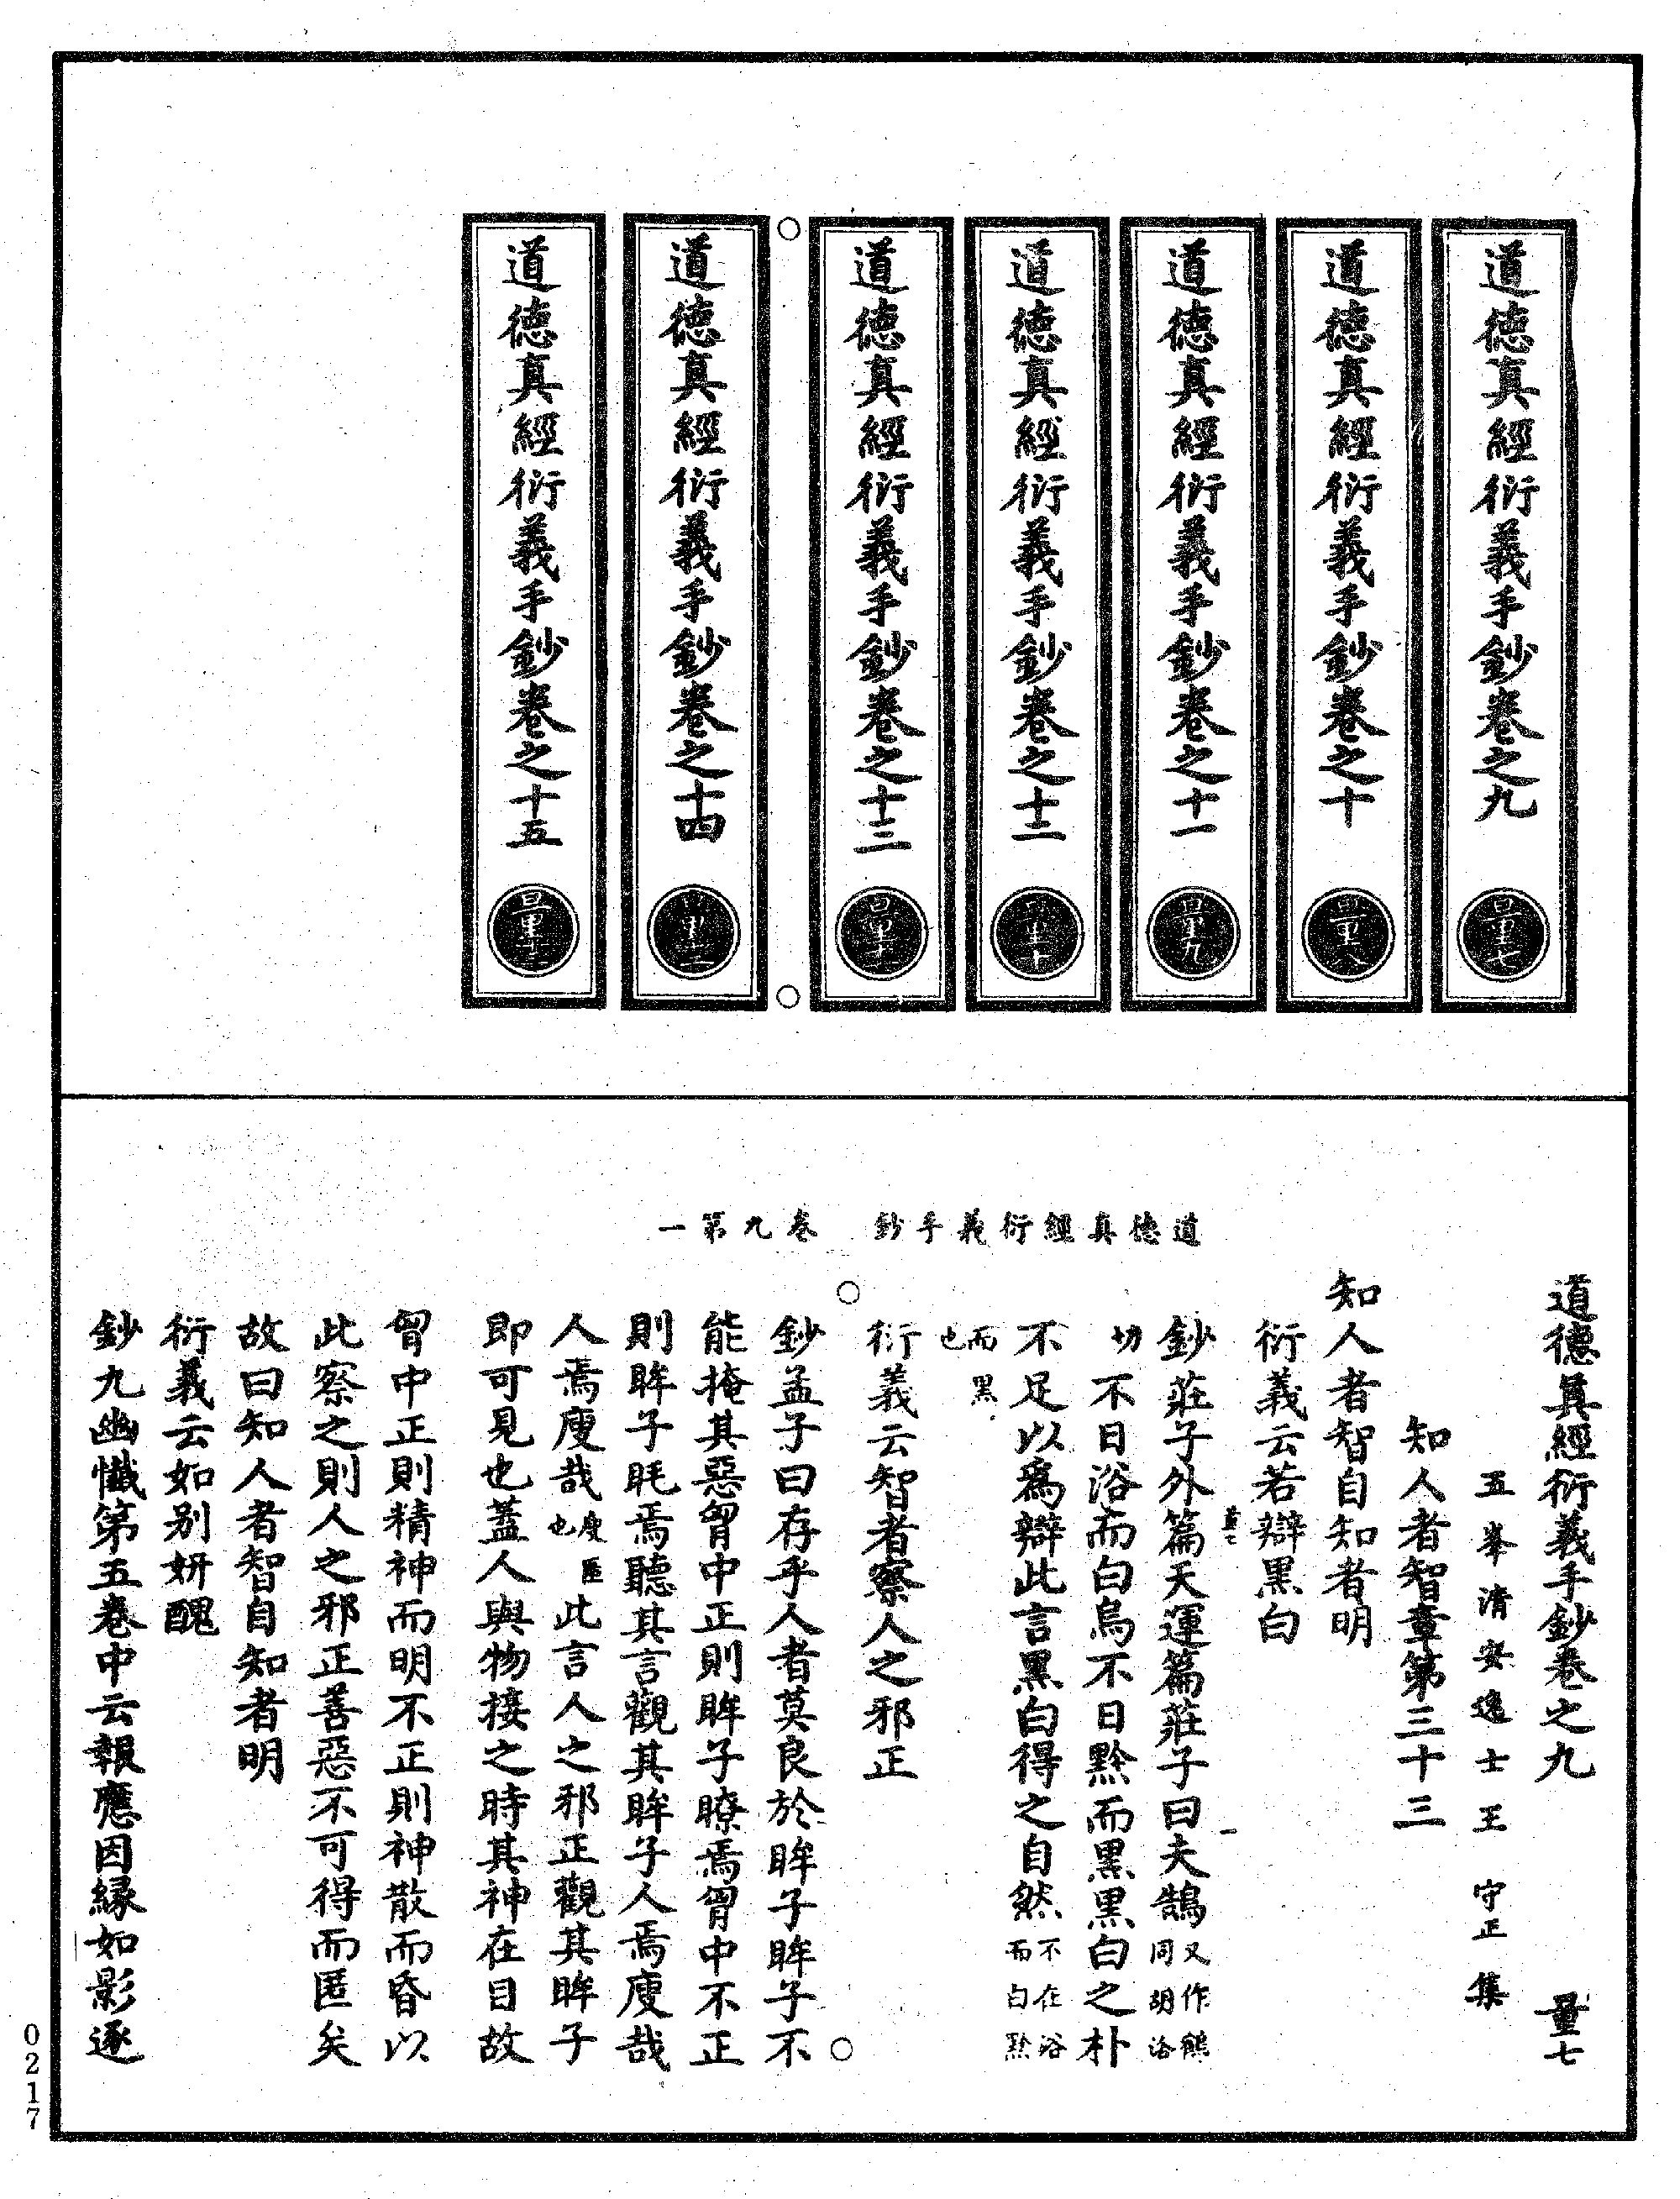 道德真經衍義手鈔卷之九 量七
道德真經衍義手鈔卷之十 量八
道德真經衍義手鈔卷之十一 量九
道德真經衍義手鈔卷之十二 量十
道德真經衍義手鈔卷之十三
道德真經衍義手鈔卷之十四
道德真經衍義手鈔卷之十五
道德真經衍義手鈔 卷九第一
道德真經衍義手鈔卷之九 量七
五峯清安逸士王守正集
知人者智章第三十三
知人者智自知者明
衍義云若辯黑白
鈔莊子外篇天運篇莊子曰夫鵠又作鶴同胡洛
切不日浴而白烏不日黔而黑黑白之朴
不足以為辯此言黑白得之自然不在浴而白黔
而黑也
衍義云智者察人之邪正
鈔孟子曰存乎人者莫良於眸子眸子不
能掩其惡胷中正則眸子瞭焉胷中不正
則眸子眊焉聽其言觀其眸子人焉廋哉
人焉廋哉廋匿也此言人之邪正觀其眸子
即可見也蓋人與物接之時其神在目故
胷中正則精神而明不正則神散而昏以
此察之則人之邪正善惡不可得而匿矣
故曰知人者智自知者明
衍義云如別妍醜
鈔九幽懺第五卷中云報應因緣如影逐
0217